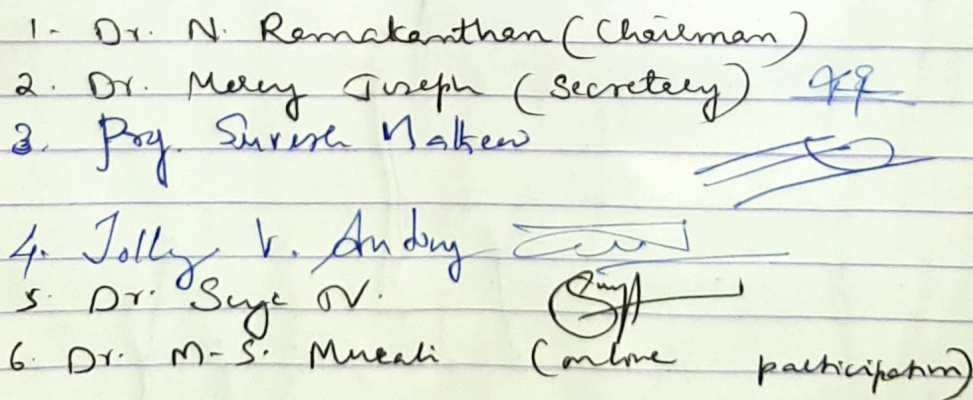 1- Dr. N. Remakanthan (Chairman)
2. Dr. Mercy Joseph (Secretary)
3. Prof. Suresh Mathew
4. Jolly V. Antony
5. Dr. Suja
6. Dr. M-S. Murali (online participation)